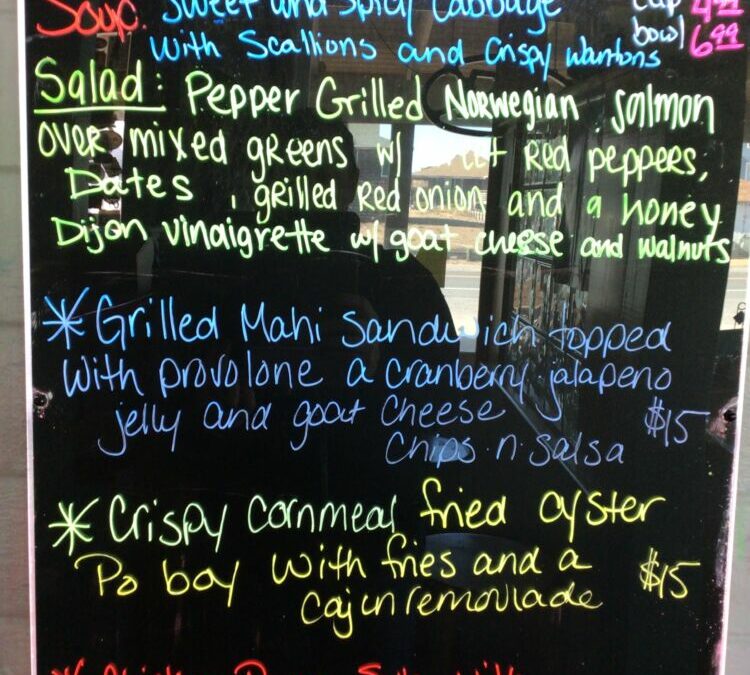 Soup. Sweet and Spicy Cabbage cup 4.99
with Scallions and Crispy wantons bowl 6.99
Salad: Pepper Grilled Norwegian Salmon
over mixed greens w/ Red peppers,
Dates, grilled red onion and a honey
Dijon vinaigrette w/ goat cheese and walnuts
* Grilled Mahi Sandwich topped
with provolone a cranberry jalapeno
jelly and goat Cheese $15
Chips n Salsa
* Crispy Cornmeal fried oyster
Po boy with fries and a $15
Cajun remoulade